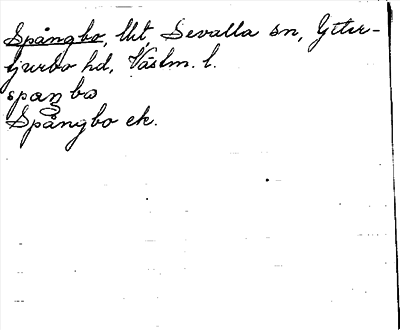 Spångbo, Uht, Sevalla sn, Ytter-
tjurbo hd, Västm. l.
spaŋbo
Spångbo ek.